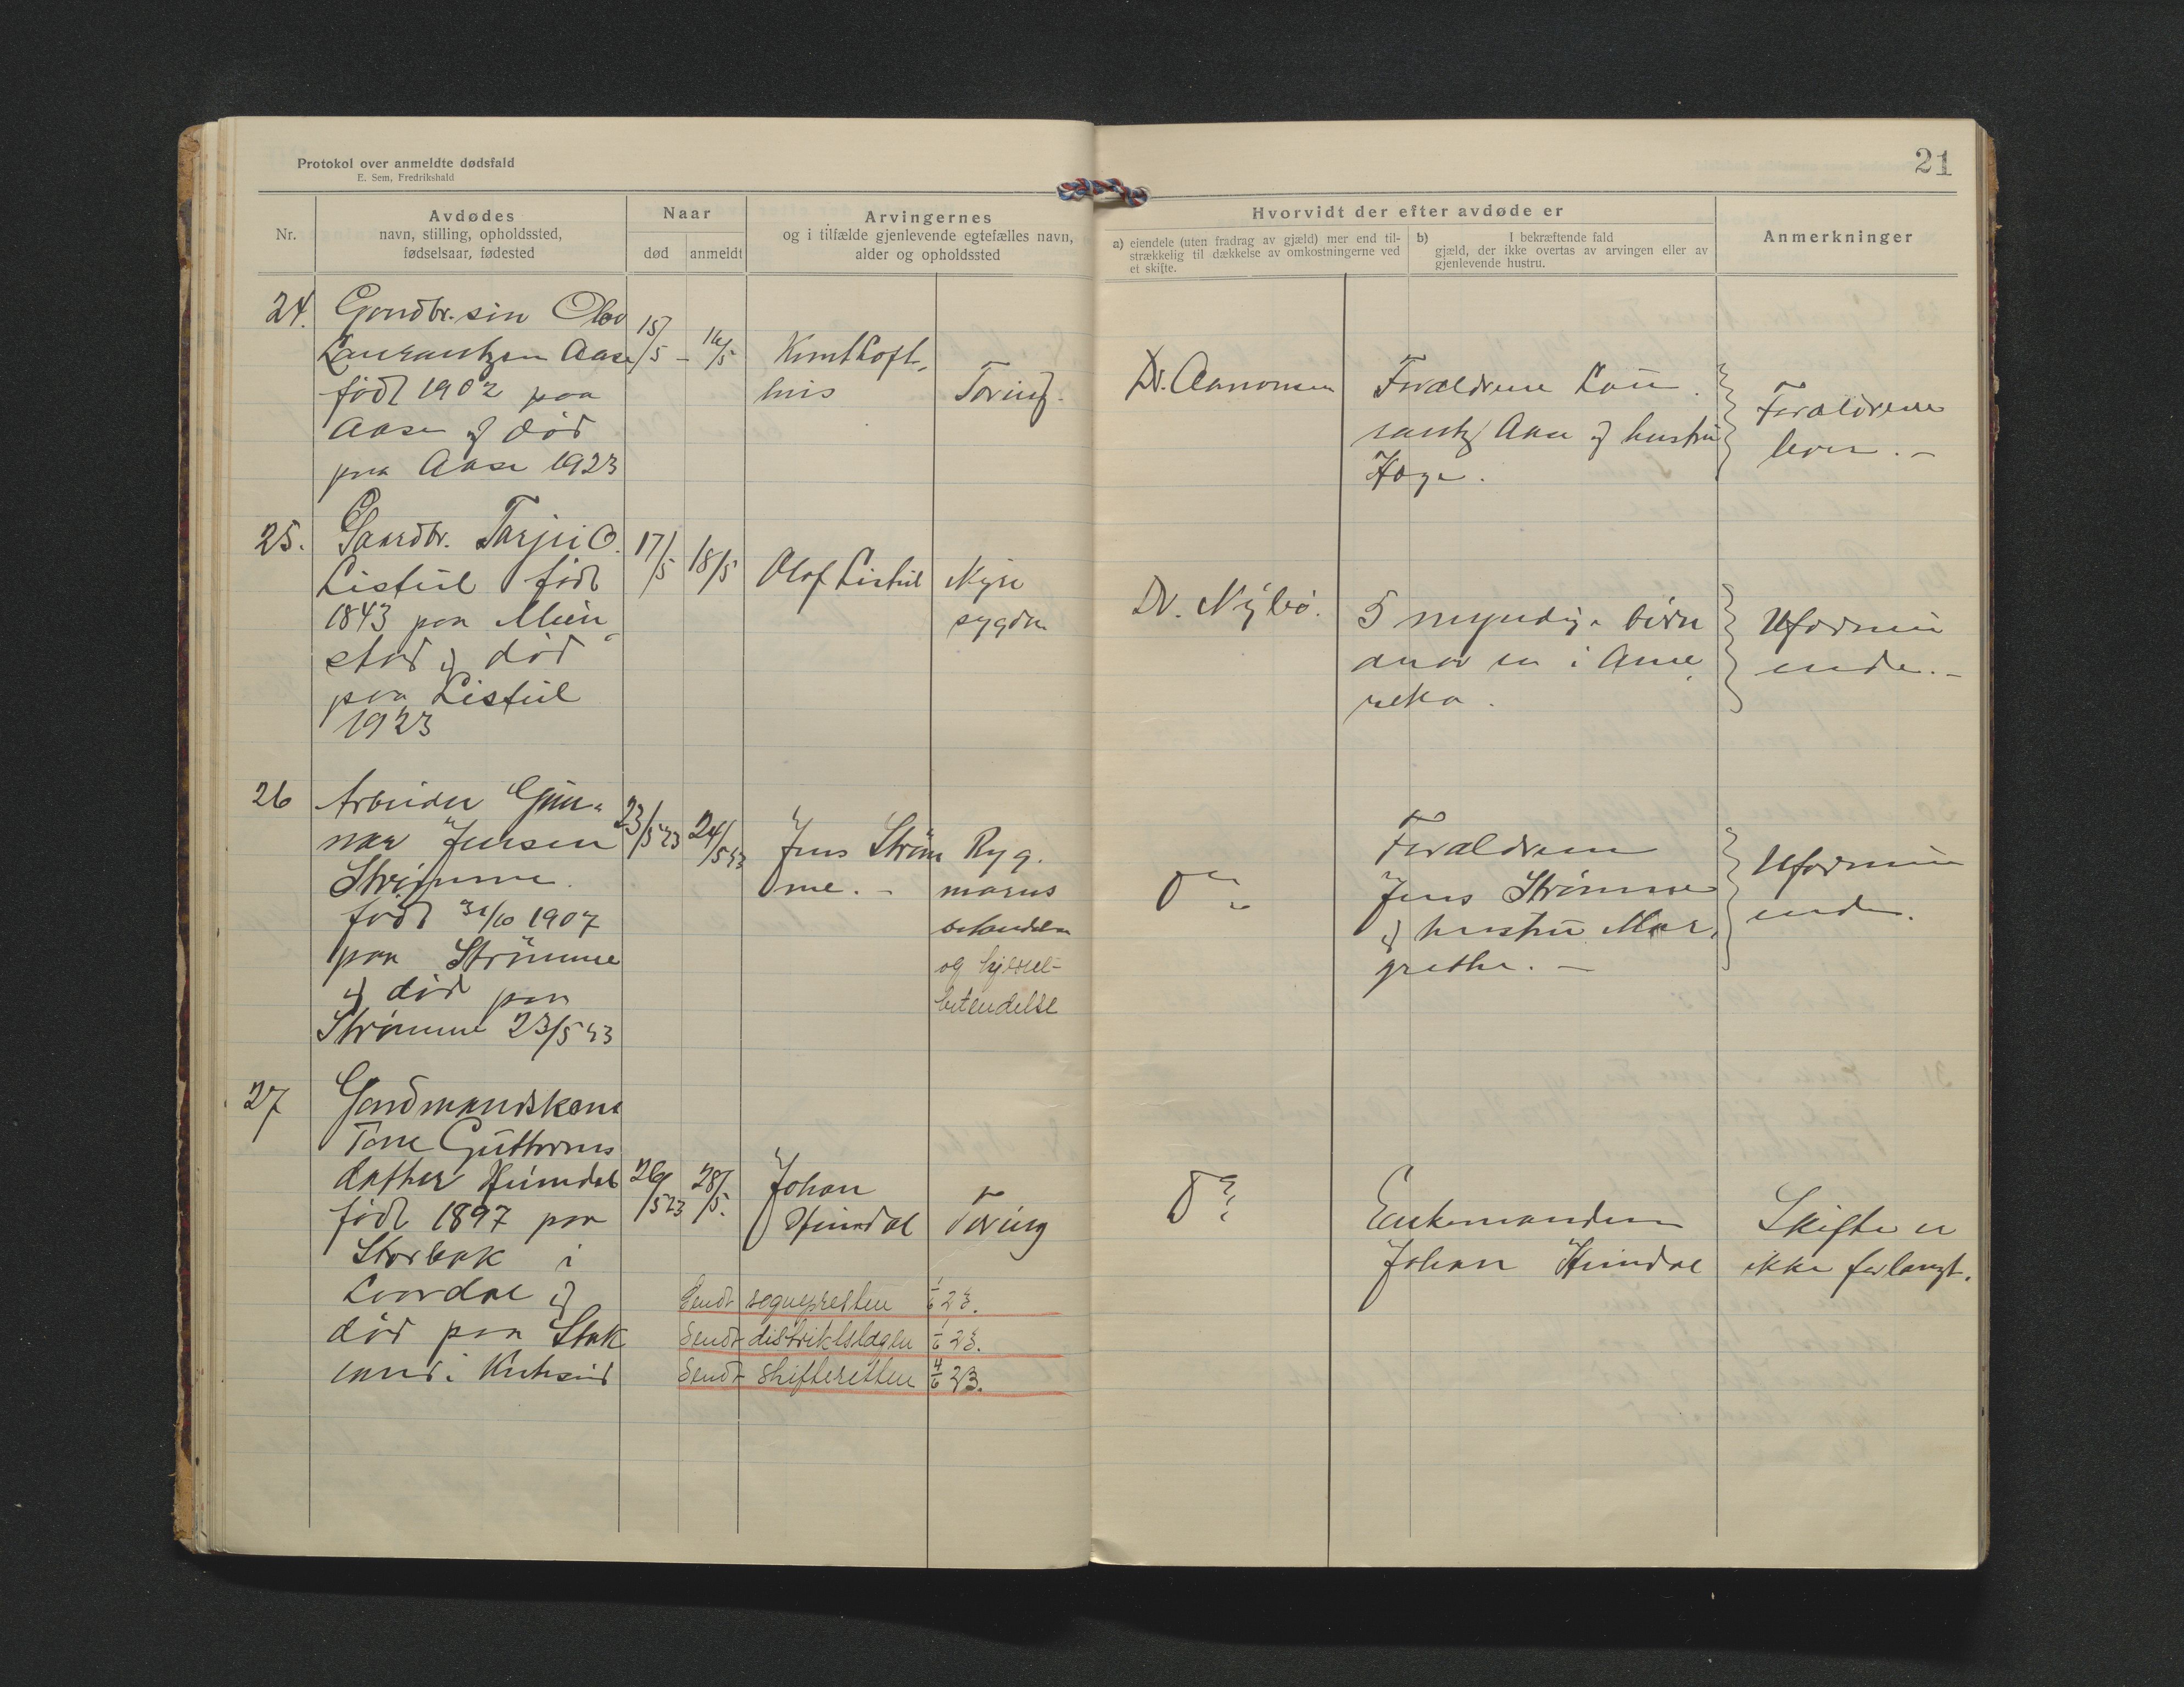 Protokol over anmeldte dødsfald
E. Sem, Fredrikshald
21
Nr.
Avdødes
navn, stilling, opholdssted,
fødselsaar, fødested
Naar
død
anmeldt
Arvingernes
og i tilfælde gjenlevende egtefælles navn,
alder og opholdssted
Hvorvidt der efter avdøde er
a) eiendele (uten fradrag av gjæld) mer end til-
strækkelig til dækkelse av omkostningerne ved
et skifte.
b) I bekræftende fald
gjæld, der ikke overtas av arvingen eller av
gjenlevende hustru.
Anmerkninger
24.
Olav
Aase
født 1902 paa
Aase og død
paa Aase 1923
15/5 - 16/5
Knut Loft-
hus
Tæring.
Dr. Aanonsen
Forældrene Lau
rantz Aase og hustru
Forældrene
lever. -
25.
Gaardbr. Tarjei O.
Listül født
1843 paa
stad og død
paa Listül
1923
17/5
18/5
Olaf Listül
Nyre
sygdm
Dr. Nÿbø.
5 myndige børn
en i Ame
reka.
Uformu
ende. -
26
Arbeider Gün-
nar Jensen
Strømme.
født 31/10 1907
paa Strømme
og død paa
Strømme 23/5 23
23/5 23
24/5 23
Jens Strøm
me. -
Ryg.
marvs
betændelse
og
betendelse
Do
Forældrene
Jens Strømme
og hustru Mar,
grethe. -
Uformu
ende.
27
Gardmandskone
Tone Güttorms
datter Heimdal
født 1897 paa
Storbak i
og
død paa
26/5 23
28/5.
Johan
Heimdal
Tæring
Do
Enkemanden
Johan Heimdal
Skifte er
ikke forlangt.
Sendt sognepresten 1/6 23.
Sendt distriktslægen 1/6 23.
Sendt skifteretten 4/6 23.